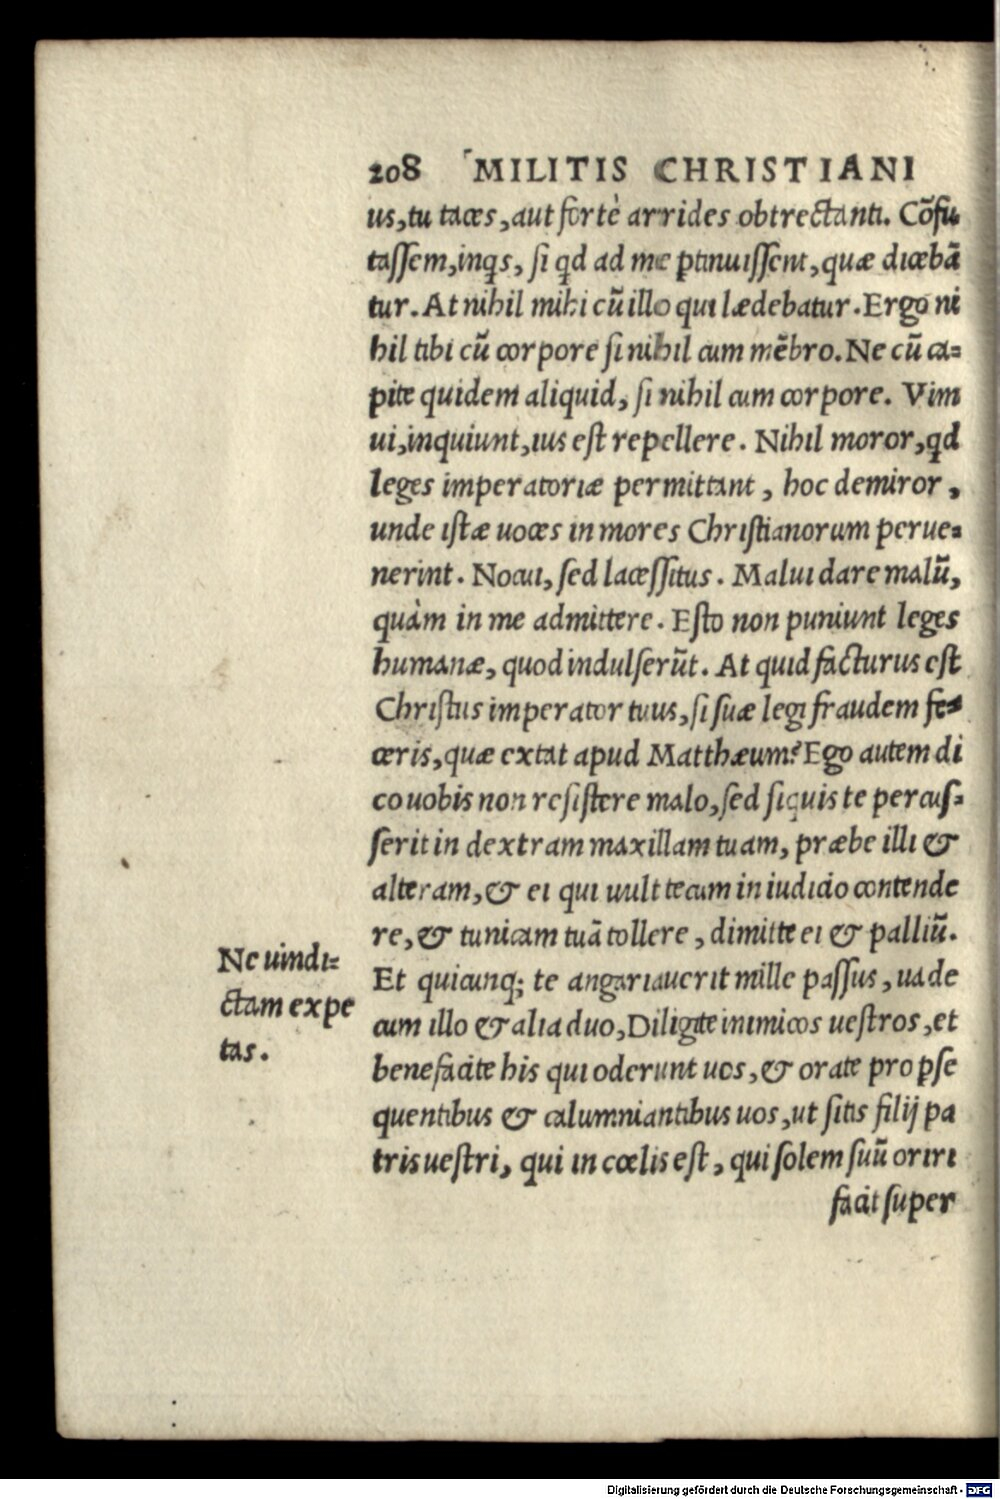 208 MILITIS CHRISTIANI
us, tu taces, aut fortè arrides obtrectanti. Cõfu
tassem, inqs, si qd ad me ptinuissent, quæ dicebã
tur. At nihil mihi cũ illo qui lædebatur. Ergo ni
hil tibi cũ corpore si nihil cum mẽbro. Ne cũ ca=
pite quidem aliquid, si nihil cum corpore. Vim
ui, inquiunt, ius est repellere. Nihil moror, qd
leges imperatoriæ permittant, hoc demiror,
unde istæ uoces in mores Christianorum perue=
nerint. Nocui, sed lacessitus. Malui dare malũ,
quàm in me admittere. Esto non puniunt leges
humanæ, quod indulserũt. At quid facturus est
Christus imperator tuus, si suæ legi fraudem fe=
ceris, quæ extat apud Matthæum? Ego autem di
co uobis non resistere malo, sed siquis te percus=
serit in dextram maxillam tuam, præbe illi &
alteram, & ei qui uult tecum in iudicio contende
re, & tunicam tuã tollere, dimitte ei & palliũ.
Et quicunq; te angariauerit mille passus, uade
cum illo & alia duo, Diligite inimicos uestros, et
benefacite his qui oderunt uos, & orate pro pse
quentibus & calumniantibus uos, ut sitis filij pa
tris uestri, qui in cœlis est, qui solem suũ oriri
facit super
Ne uindi=
ctam expe
tas.
Digitalisierung gefördert durch die Deutsche Forschungsgemeinschaft - DFG